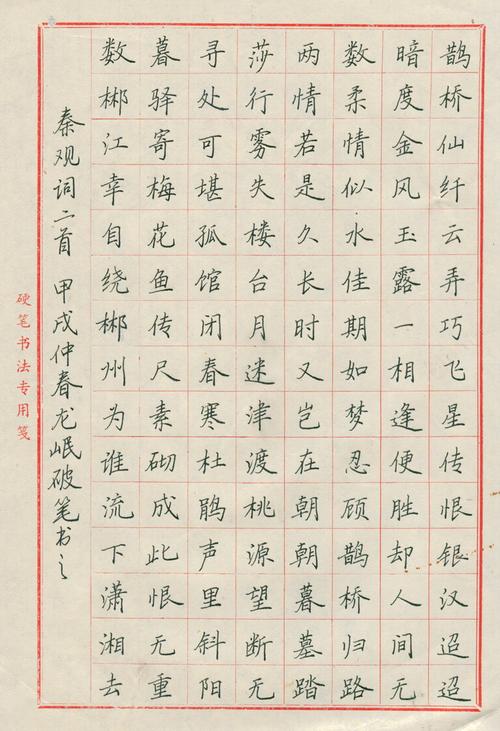 鹊桥仙纤云弄巧飞星传恨银汉迢迢
暗度金风玉露一相逢便胜却人间无
数柔情似水佳期如梦忍顾鹊桥归路
两情若是久长时又岂在朝朝暮墓踏
莎行雾失楼台月迷津渡桃源望断无
寻处可堪孤馆闭春寒杜鹃声里斜阳
暮驿寄梅花鱼传尺素砌成此恨无重
数郴江幸自绕郴州为谁流下潇湘去
秦观词二首 甲戌仲春龙岷破笔书之
硬笔书法专用笺